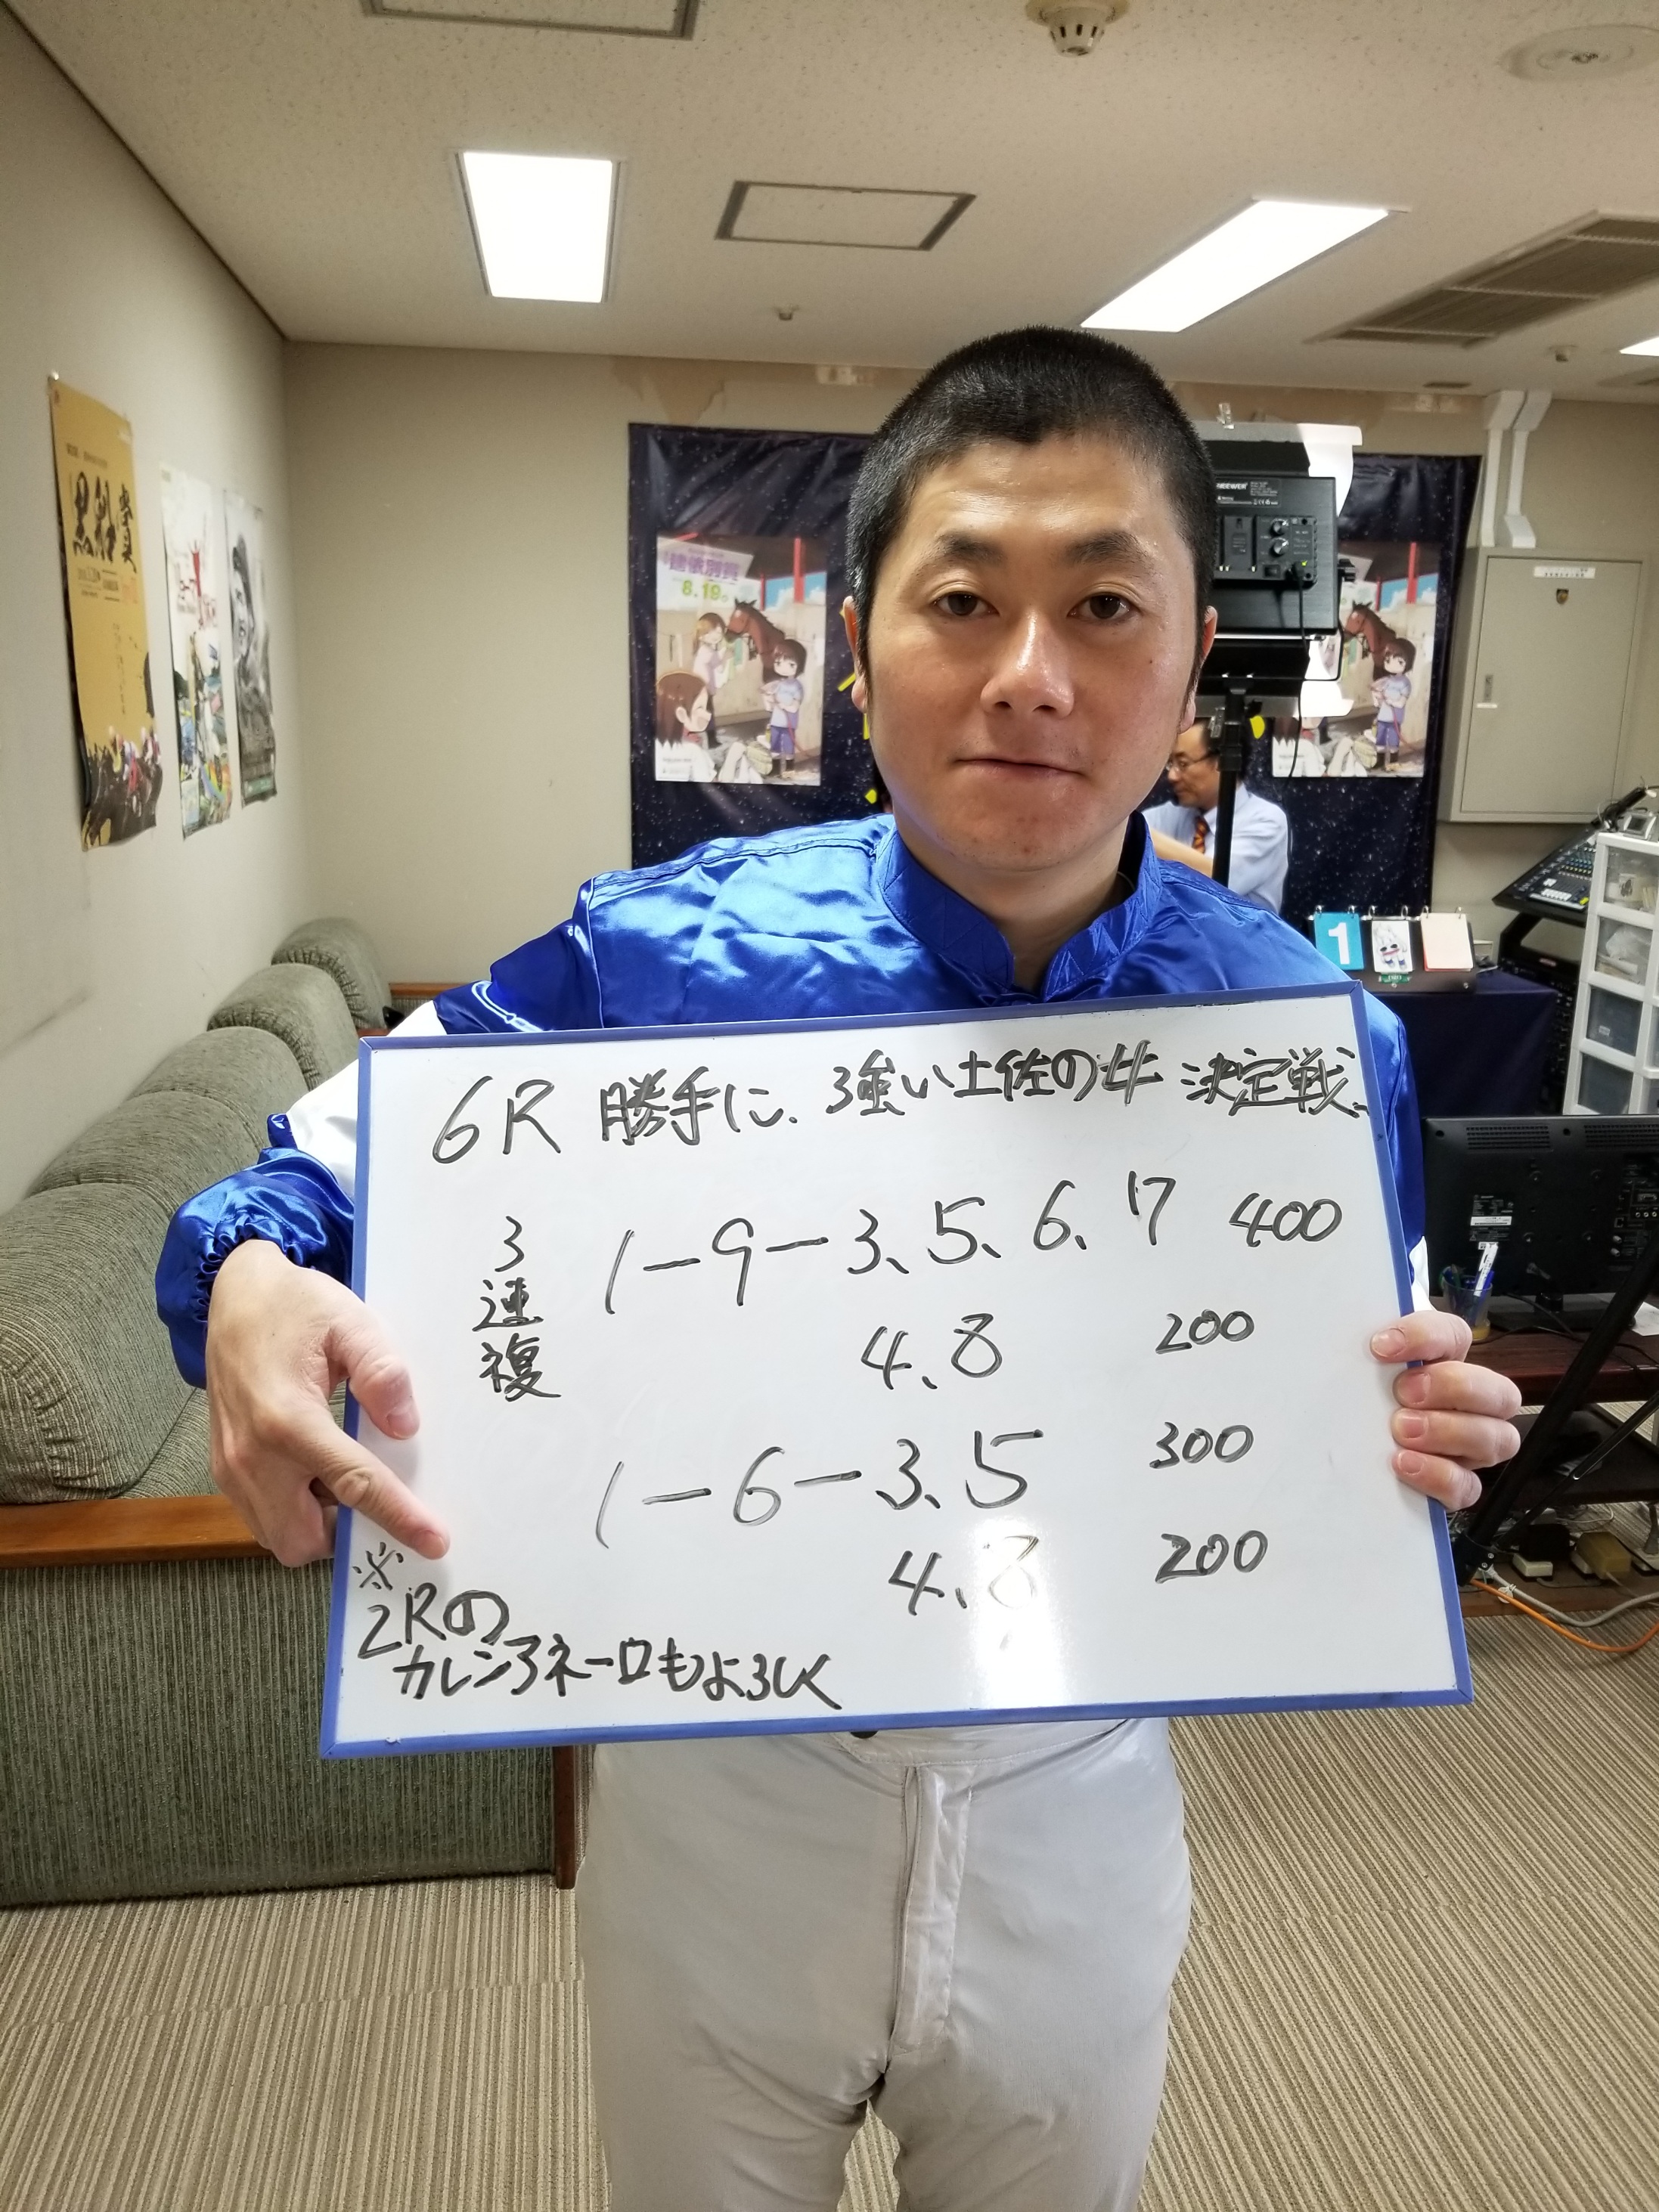 黒船賞
8.19
NEEWER
1
6R 勝手に、3強い土佐の牛 決定戦
3連複
1-9-3、5、6、7 400
4、8 200
1-6-3、5 300
4、8 200
※
2Rの
カレンアネーロもよろしく